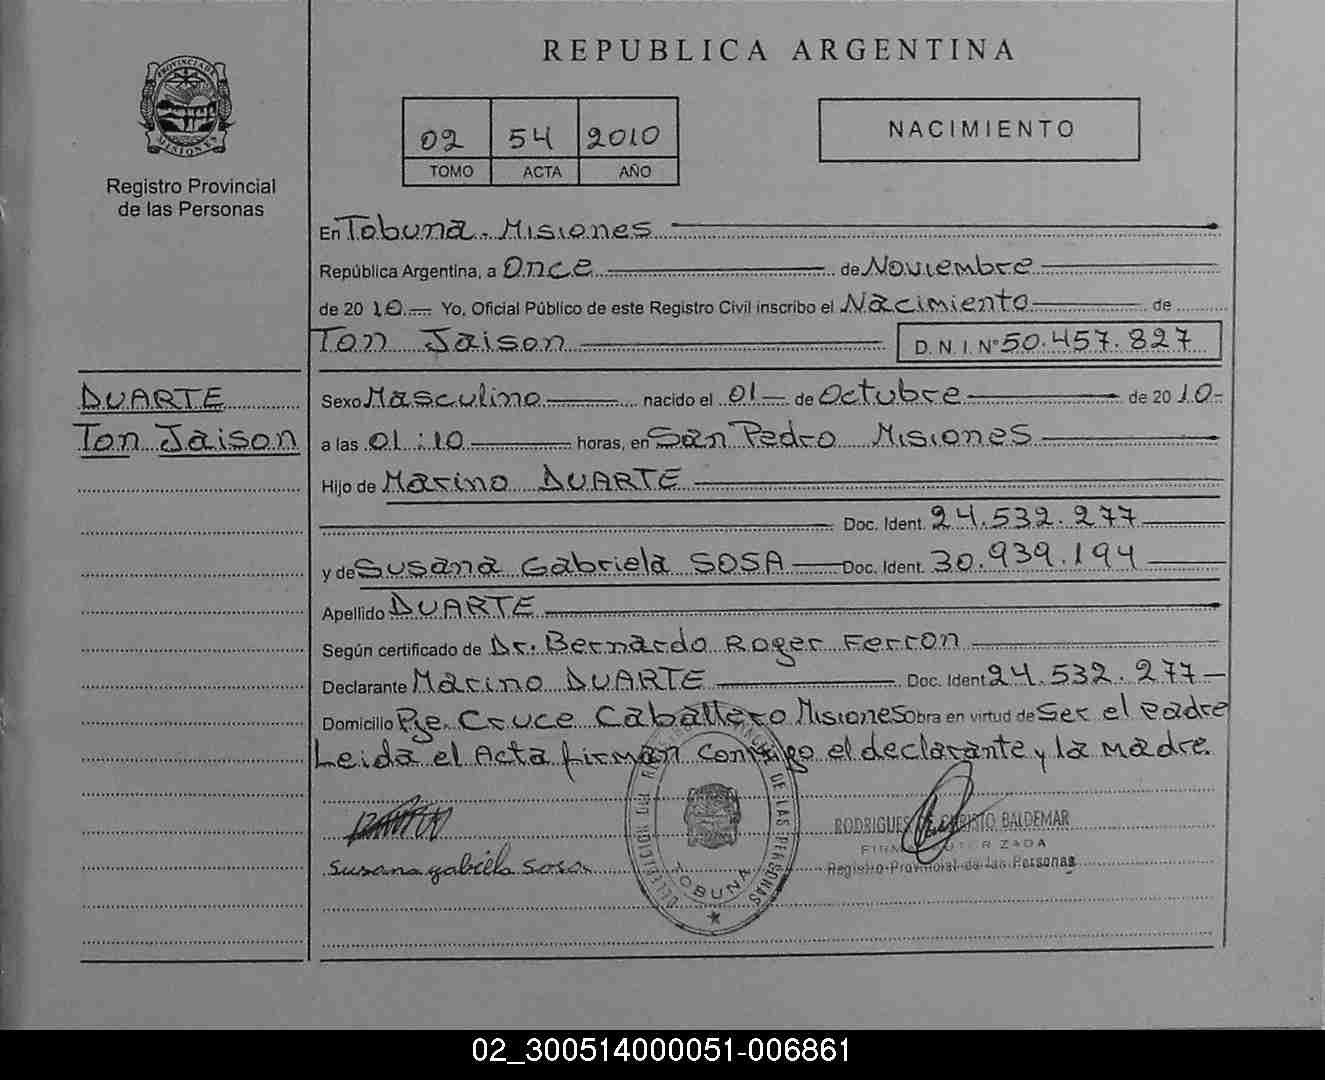 REPUBLICA ARGENTINA
PROVINCIA DE MISIONES
Registro Provincial
de las Personas
02 54 2010
TOMO ACTA AÑO
NACIMIENTO
En Tobuna - Misiones
República Argentina, a Once de Noviembre
de 2010.- Yo, Oficial Público de este Registro Civil inscribo el Nacimiento de
Ton Jaison D.N.I.N° 50.457.827
DUARTE
Ton Jaison
Sexo Masculino nacido el 01 de Octubre de 2010-
a las 01:10 horas, en San Pedro Misiones
Hijo de Marino DUARTE
Doc. Ident. 24.532.277
y de Susana Gabriela SOSA Doc. Ident. 30.939.194
Apellido DUARTE
Según certificado de Dr. Bernardo Roger Ferron
Declarante Marino DUARTE Doc. Ident 24.532.277
Domicilio Pje. Cruce Caballero Misiones Obra en virtud de Ser el Padre
Leida el Acta firman conmigo el declarante y la madre.
susana gabiela sosa
DE LAS PERSONAS
TOBUNA
RODRIGUES BALDEMAR
Registro Provincial de las Personas
02_300514000051-006861